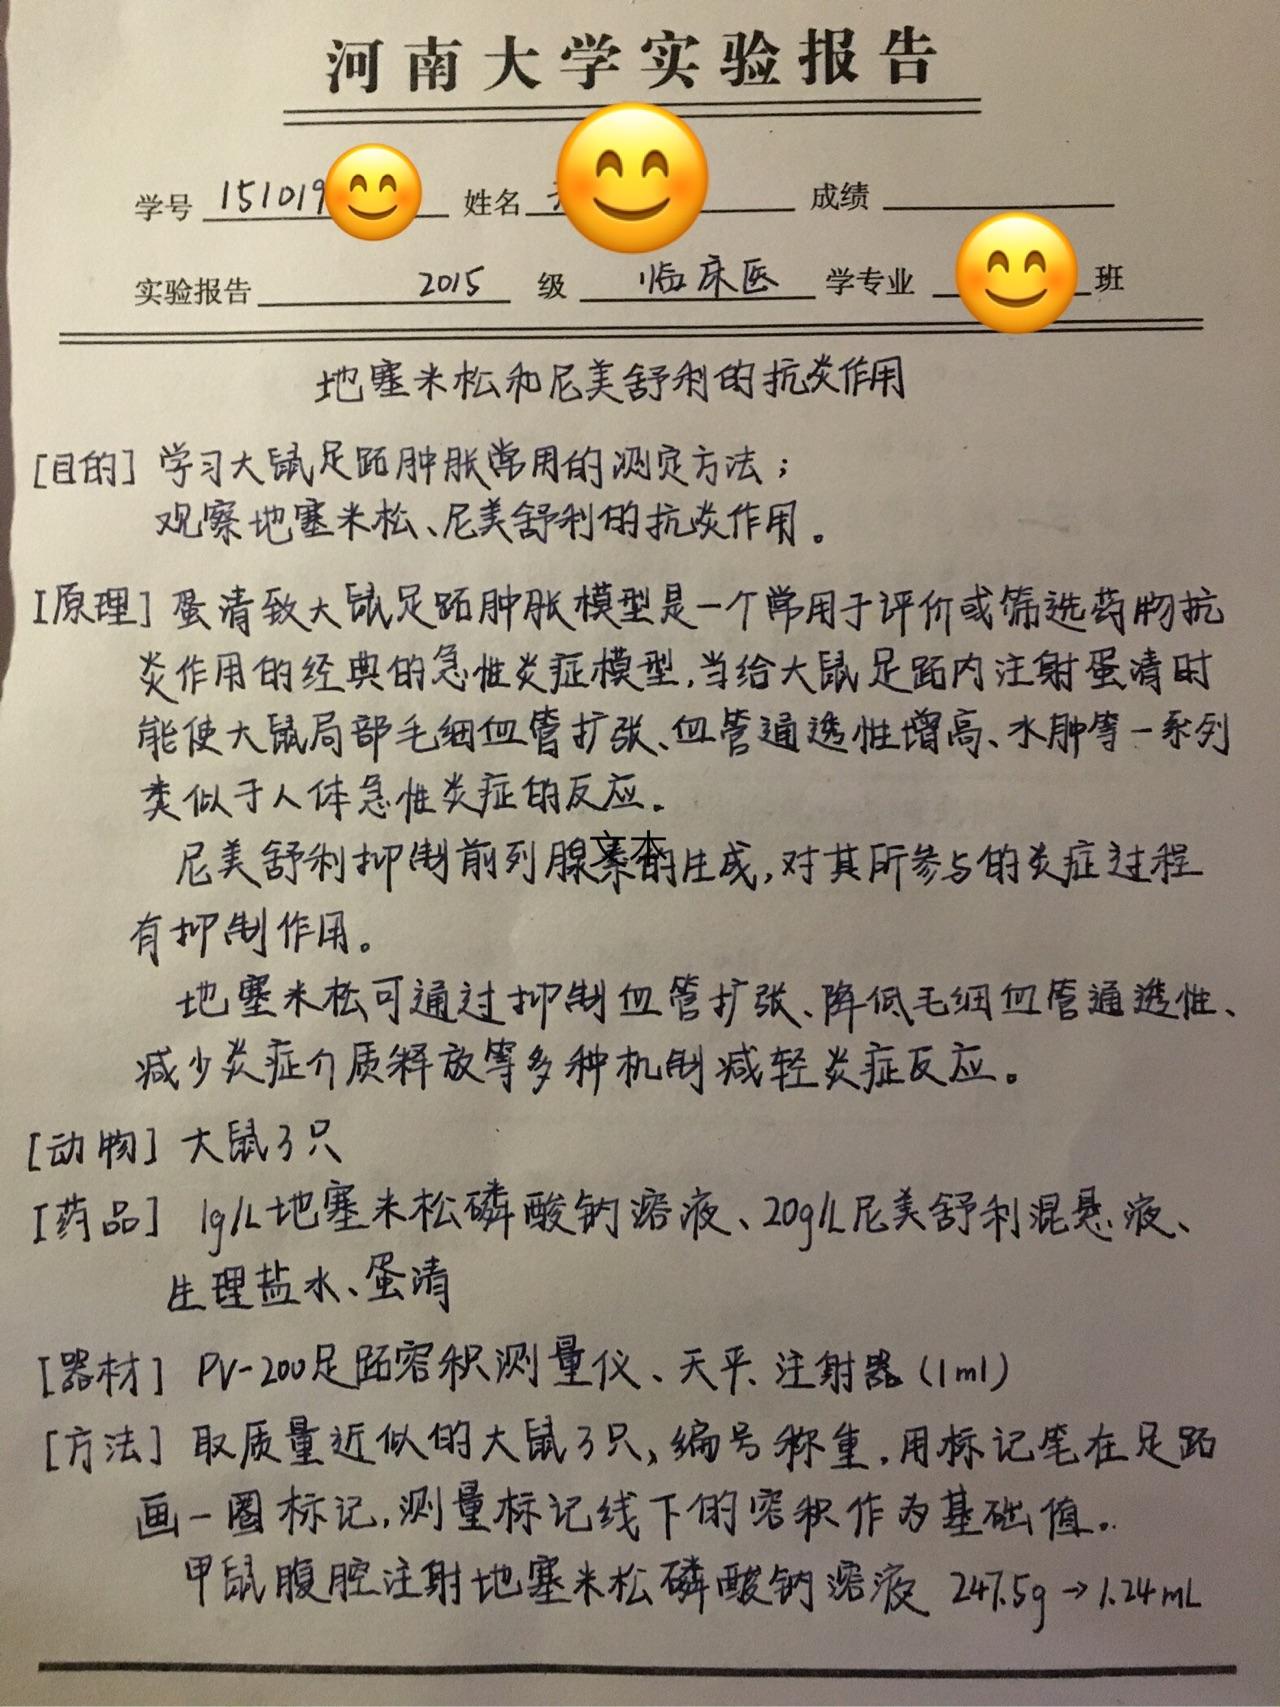 河南大学实验报告
学号 151019 姓名 成绩
实验报告 2015 级 临床医 学专业 班
地塞米松和尼美舒利的抗炎作用
[目的] 学习大鼠足跖肿胀常用的测定方法；
观察地塞米松、尼美舒利的抗炎作用。
[原理] 蛋清致大鼠足跖肿胀模型是一个常用于评价或筛选药物抗
炎作用的经典的急性炎症模型,当给大鼠足跖内注射蛋清时
能使大鼠局部毛细血管扩张、血管通透性增高、水肿等一系列
类似于人体急性炎症的反应。
尼美舒利抑制前列腺素的生成,对其所参与的炎症过程
文本
有抑制作用。
地塞米松可通过抑制血管扩张、降低毛细血管通透性、
减少炎症介质释放等多种机制减轻炎症反应。
[动物] 大鼠3只
[药品] 1g/L地塞米松磷酸钠溶液、20g/L尼美舒利混悬液、
生理盐水、蛋清
[器材] PV-200足跖容积测量仪、天平、注射器(1ml)
[方法] 取质量近似的大鼠3只,编号称重,用标记笔在足跖
画一圈标记,测量标记线下的容积作为基础值。
甲鼠腹腔注射地塞米松磷酸钠溶液 247.5g→1.24mL